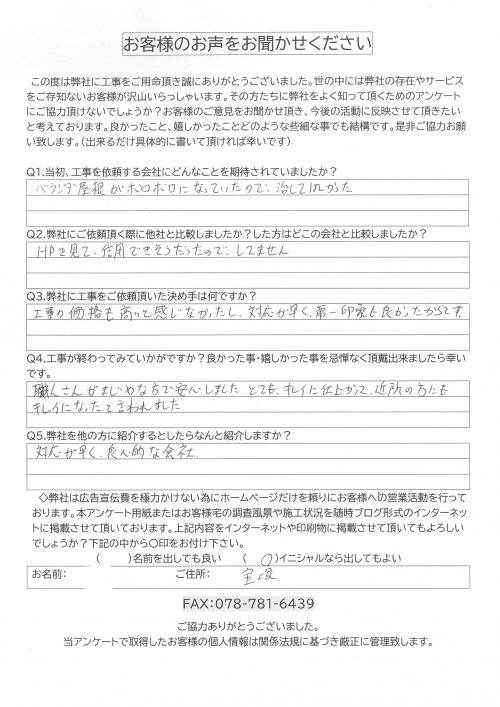 お客様のお声をお聞かせください
この度は弊社に工事をご用命頂き誠にありがとうございました。世の中には弊社の存在やサービス
をご存知ないお客様が沢山いらっしゃいます。その方たちに弊社をよく知って頂くためのアンケート
にご協力頂けないでしょうか？お客様のご意見をお聞かせ頂き、今後の活動に反映させて頂きたい
と考えております。良かったこと、嬉しかったことどのような些細な事でも結構です。是非ご協力お願
い致します。（出来るだけ具体的に書いて頂ければ幸いです）
Q1.当初、工事を依頼する会社にどんなことを期待されていましたか？
ベランダ屋根がボロボロになっていたので、治してほしかった
Q2.弊社にご依頼頂く際に他社と比較しましたか？した方はどこの会社と比較しましたか？
HPを見て、信用できそうだったので、してません
Q3.弊社に工事をご依頼頂いた決め手は何ですか？
工事の価格も高いと感じなかったし、対応が早く、第一印象も良かったからです。
Q4.工事が終わってみていかがですか？良かった事・嬉しかった事を忌憚なく頂戴出来ましたら幸い
です。
職人さんがまじめな方で安心しました。とても、キレイに仕上がって、近所の方にも
キレイになったと言われました。
Q5.弊社を他の方に紹介するとしたらなんと紹介しますか？
対応が早く、良心的な会社。
◇弊社は広告宣伝費を極力かけない為にホームページだけを頼りにお客様への営業活動を行って
おります。本アンケート用紙またはお客様宅の調査風景や施工状況を随時ブログ形式のインターネッ
トに掲載させて頂いております。上記内容をインターネットや印刷物に掲載させて頂いてもよろしい
でしょうか？下記の中から〇印をお付け下さい。
（　　）名前を出しても良い　（　〇）イニシャルなら出してもよい
お名前：　ご住所：
FAX：078-781-6439
ご協力ありがとうございました。
当アンケートで取得したお客様の個人情報は関係法規に基づき厳正に管理致します。